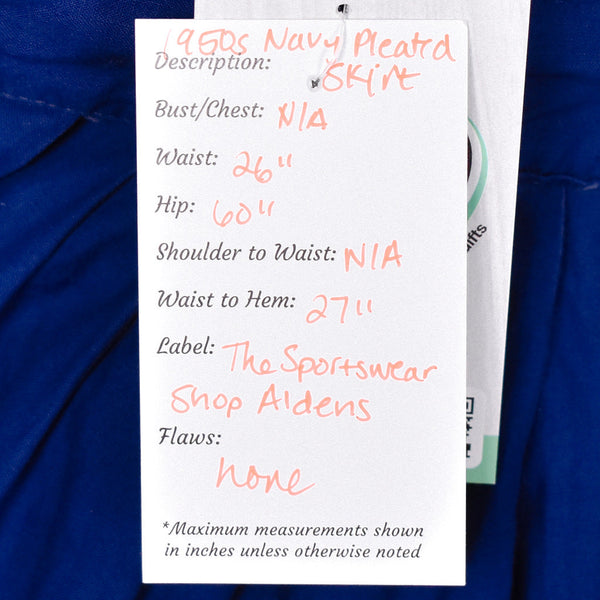 1950s Navy Pleatd
Description: Skirt
Bust/Chest: N/A
Waist: 26"
Hip: 60"
Shoulder to Waist: N/A
Waist to Hem: 27"
Label: The Sportswear
Shop Aldens
Flaws:
none
*Maximum measurements shown
in inches unless otherwise noted